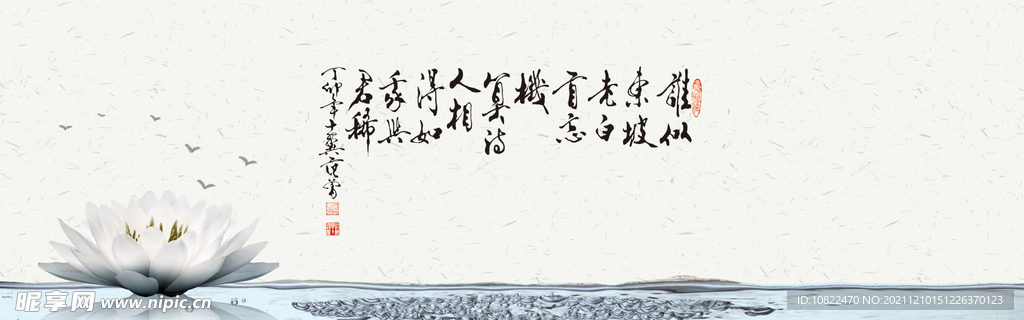 誰似
東坡
老白
首忘
機
算詩
人相
得如
我與
君稀
丁卯年十翼范曾
昵享网 www.nipic.cn
ID:10822470 NO:20211210151226370123